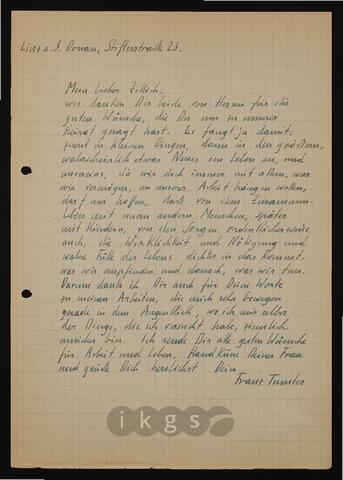 Linz a. d. Donau, Stifterstraße 23.
Mein lieber Zillich,
wir danken Dir beide von Herzen für die
guten Wünsche, die Du uns zu unserer
Heirat gesagt hast. Es fängt ja damit,
zuerst in kleinen Dingen, dann in den größern,
wahrscheinlich etwas Neues im Leben an, und
unsereins, die wir doch immer mit allem, was
wir vermögen, an unserer Arbeit hängen wollen,
darf nur hoffen, daß von dem Zusammen-
leben mit einem anderen Menschen, später
mit Kindern, von den Sorgen ordentlicherweise
auch, die Wirklichkeit und Nötigung und
wahre Fülle des Lebens dichter in das kommt,
was wir empfinden und danach, was wir tun.
Darum danke ich Dir auch für Deine Worte
zu meinen Arbeiten, die mich sehr bewegen
gerade in dem Augenblick, wo ich mir selbst
der Dinge, die ich versucht habe, ziemlich
unsicher bin. Ich sende Dir alle guten Wünsche
für Arbeit und Leben, Handküsse Deiner Frau
und grüße Dich herzlichst Dein
Franz Tumler
ikgs